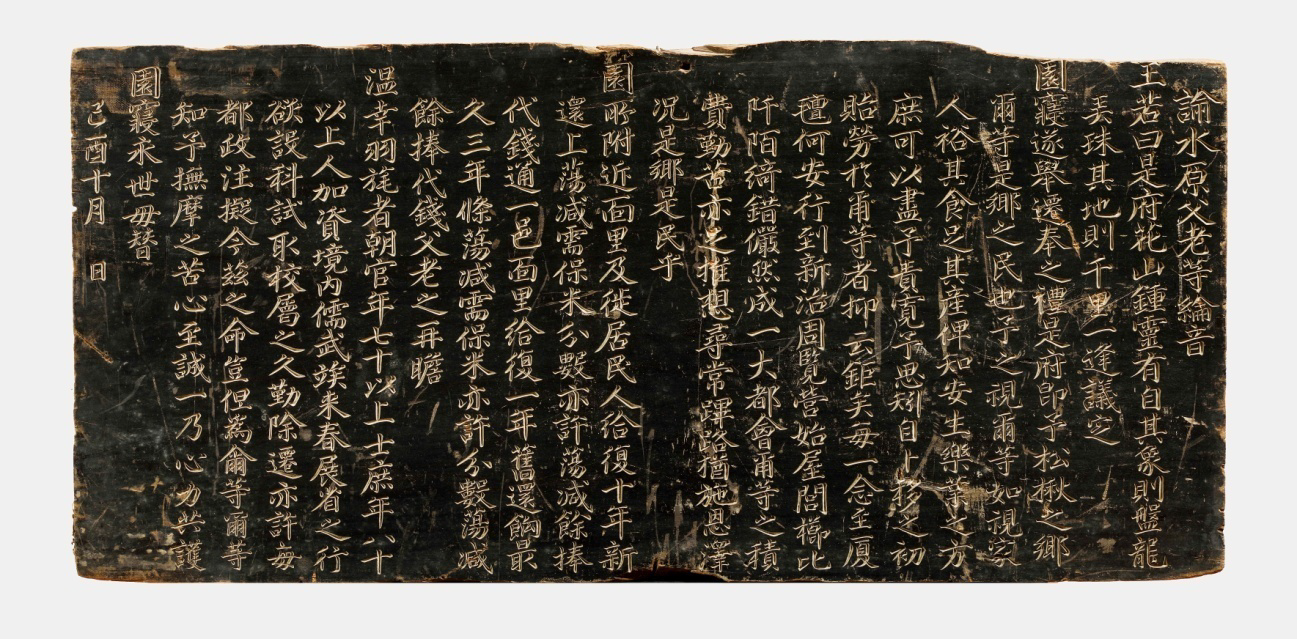 諭水原父老等綸音
王若曰是府花山鍾靈有自其象則盤龍
弄珠其地則千里一逢議定
園寢遂舉遷奉之禮是府卽予松楸之鄉
爾等是鄉之民也予之視爾等如視家
人裕其食足其產俾知安生樂業之方
庶可以盡予責寬予思矧自上移之初
貽勞於甫等者抑云鉅矣每一念至厦
氊何安行到新治周覽營始屋閭櫛比
阡陌綺錯儼然成一大都會甫等之積
費勤苦亦足推想尋常蹕路猶施恩澤
況是鄉是民乎
園所附近面里及徙居民人給復十年新
還上蕩減需保米分數亦許蕩減餘捧
代錢通一邑面里給復一年舊還餉最
久三年條蕩減需保米亦許分數蕩減
餘捧代錢父老之再瞻
溫幸羽旄者朝官年七十以上士庶年八十
以上人加資境內儒武竢來春展省之行
欲設科試取校層之久勤除遷亦許每
都政注擬今茲之命豈但為爾等爾等
知予撫摩之苦心至誠一乃心力共護
園寢永世毋替
己酉十月 日